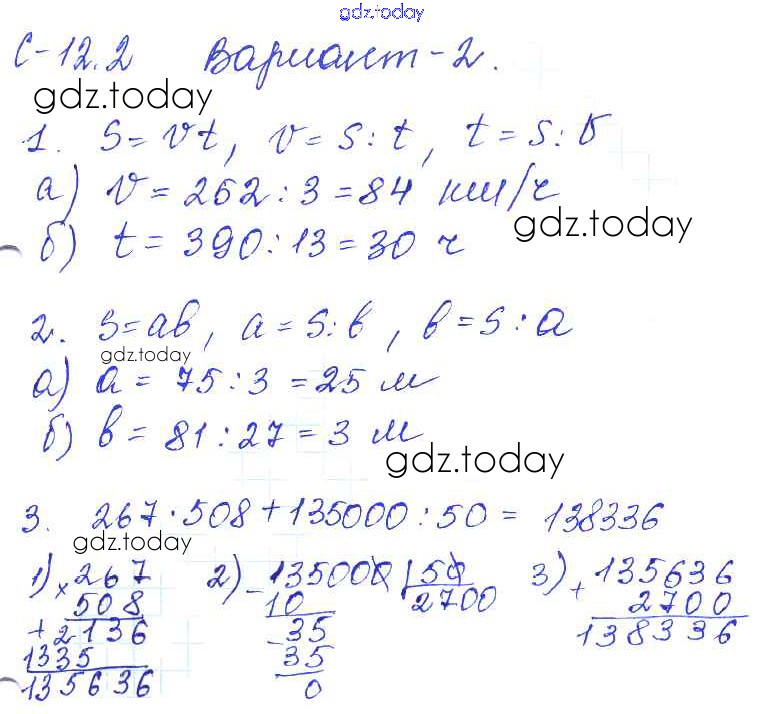 gdz.today
С-12.2 Вариант-2.
gdz.today
1. S=vt, v=S:t, t=S:v
а) v=262:3=84 км/ч
gdz.today
б) t=390:13=30 ч
2. S=ab, a=S:b, b=S:a
gdz.today
а) a=75:3=25 м
б) b=81:27=3 м
gdz.today
3. 267·508+135000:50=138336
gdz.today
1) ×267 2) -135000 |50 3) +135636
508 10 2700 2700
+2136 -35 138336
1335 35
135636 0